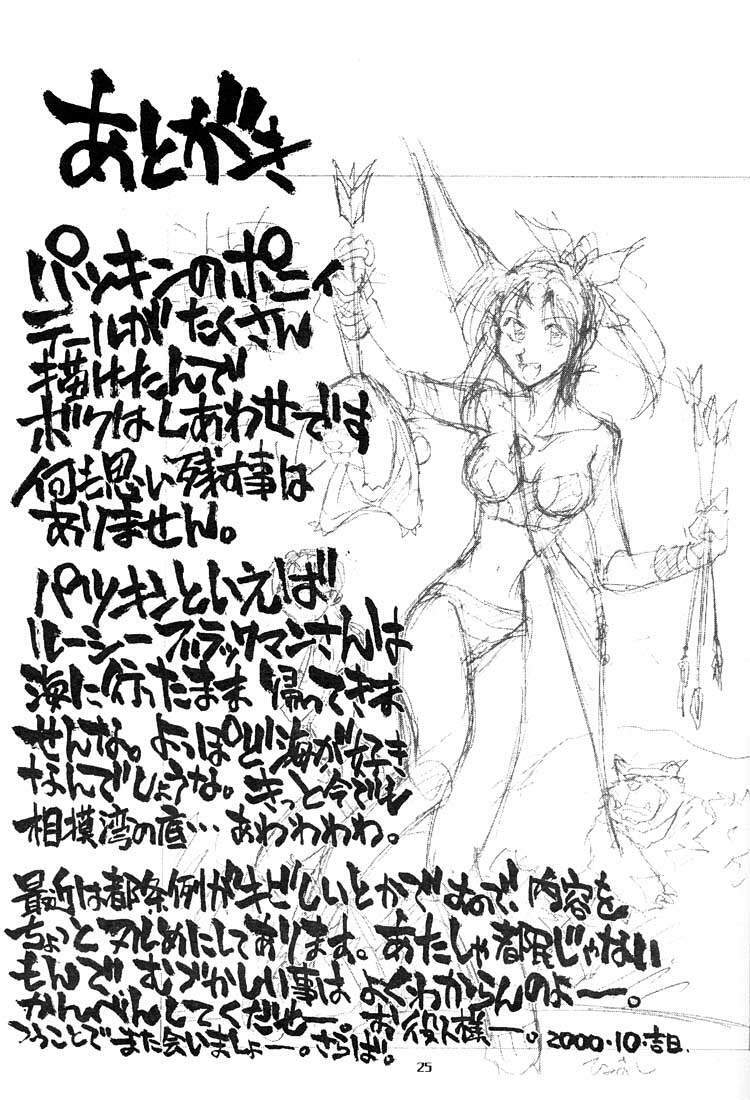 あとがき
パツキンのポニィ
テールがたくさん
描けたんで
ボクはしあわせです
何も思い残す事は
ありません。
パツキンといえば
ルーシーブラックマンさんは
海に行ったまま 帰ってきま
せんな。よっぽど海が好き
なんでしょうな。きっと今でも
相模湾の底… あわわわわ。
最近は都条例がキビしいとかですので、内容を
ちょっとヌルめにしてあります。あたしゃ都民じゃない
もんで むづかしい事は よくわからんのよー。
かんべんしてくだせー。お役人様ー。
つうことで また会いましょー。さらば。
2000.10.吉日
25